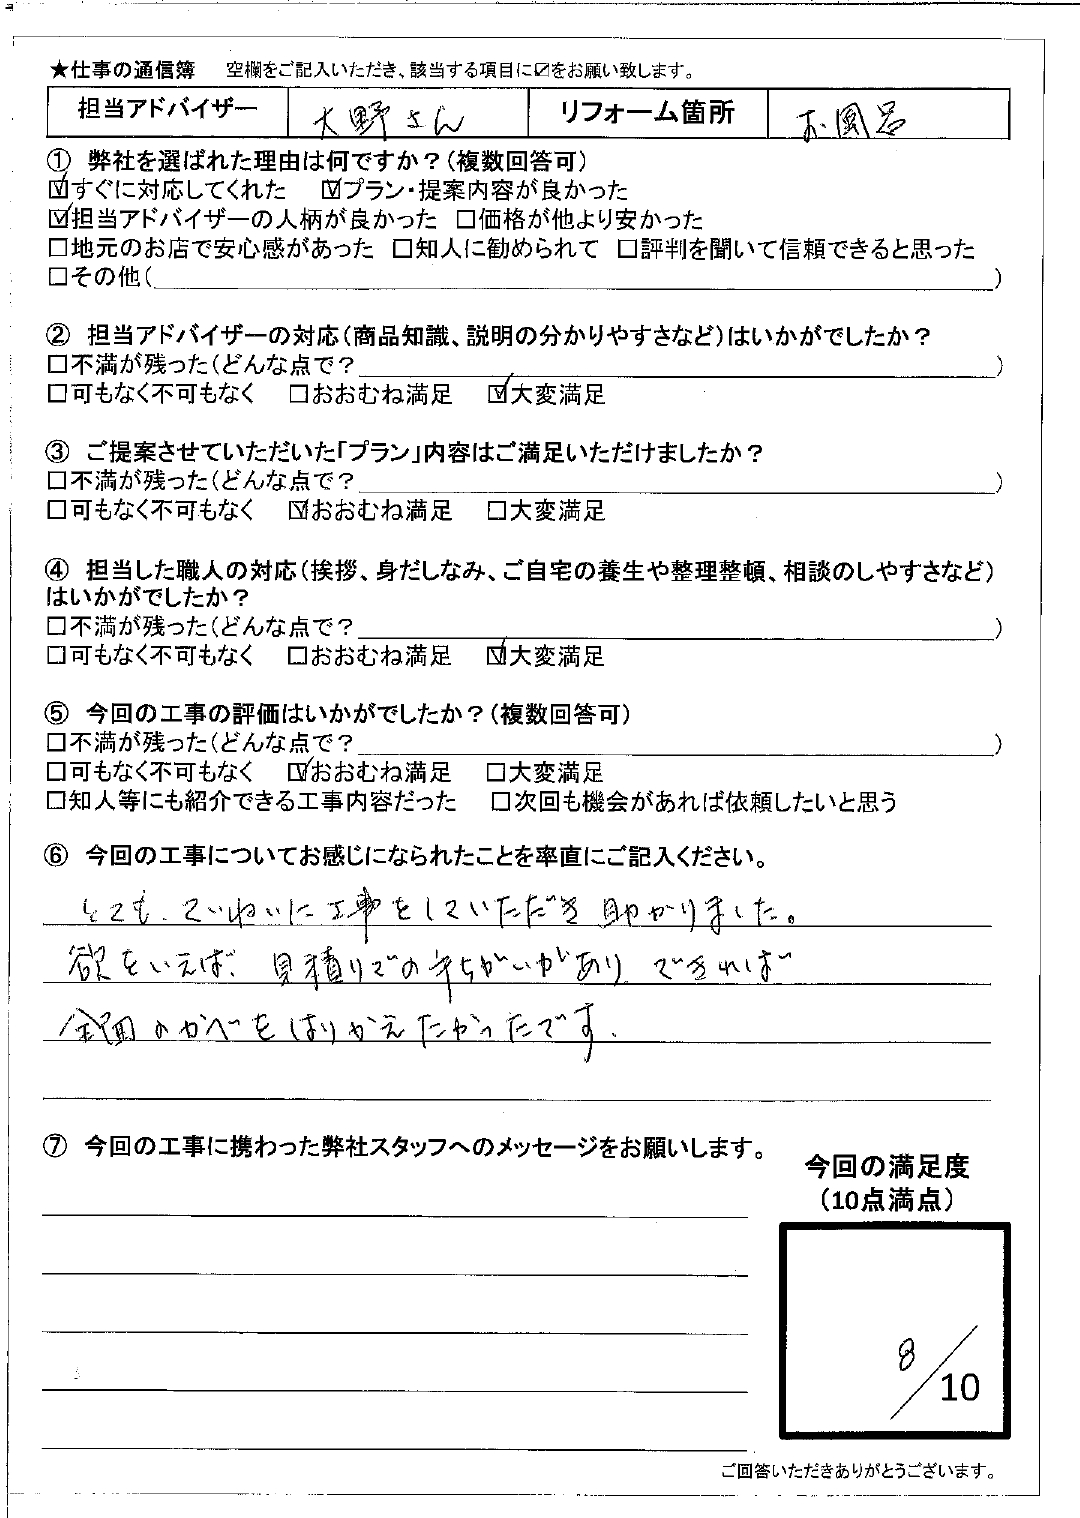 ★仕事の通信簿 空欄をご記入いただき、該当する項目に☑をお願い致します。
担当アドバイザー 大野さん リフォーム箇所 お風呂
① 弊社を選ばれた理由は何ですか？（複数回答可）
☑すぐに対応してくれた ☑プラン・提案内容が良かった
☑担当アドバイザーの人柄が良かった □価格が他より安かった
□地元のお店で安心感があった □知人に勧められて □評判を聞いて信頼できると思った
□その他（ ）
② 担当アドバイザーの対応（商品知識、説明の分かりやすさなど）はいかがでしたか？
□不満が残った（どんな点で？ ）
□可もなく不可もなく □おおむね満足 ☑大変満足
③ ご提案させていただいた「プラン」内容はご満足いただけましたか？
□不満が残った（どんな点で？ ）
□可もなく不可もなく ☑おおむね満足 □大変満足
④ 担当した職人の対応（挨拶、身だしなみ、ご自宅の養生や整理整頓、相談のしやすさなど）
はいかがでしたか？
□不満が残った（どんな点で？ ）
□可もなく不可もなく □おおむね満足 ☑大変満足
⑤ 今回の工事の評価はいかがでしたか？（複数回答可）
□不満が残った（どんな点で？ ）
□可もなく不可もなく ☑おおむね満足 □大変満足
□知人等にも紹介できる工事内容だった □次回も機会があれば依頼したいと思う
⑥ 今回の工事についてお感じになられたことを率直にご記入ください。
とても、ていねいに工事をしていただき助かりました。
欲をいえば、見積りでの手ちがいがあり、できれば
全面のかべをはりかえたかったです。
⑦ 今回の工事に携わった弊社スタッフへのメッセージをお願いします。
今回の満足度
（10点満点）
8/10
ご回答いただきありがとうございます。